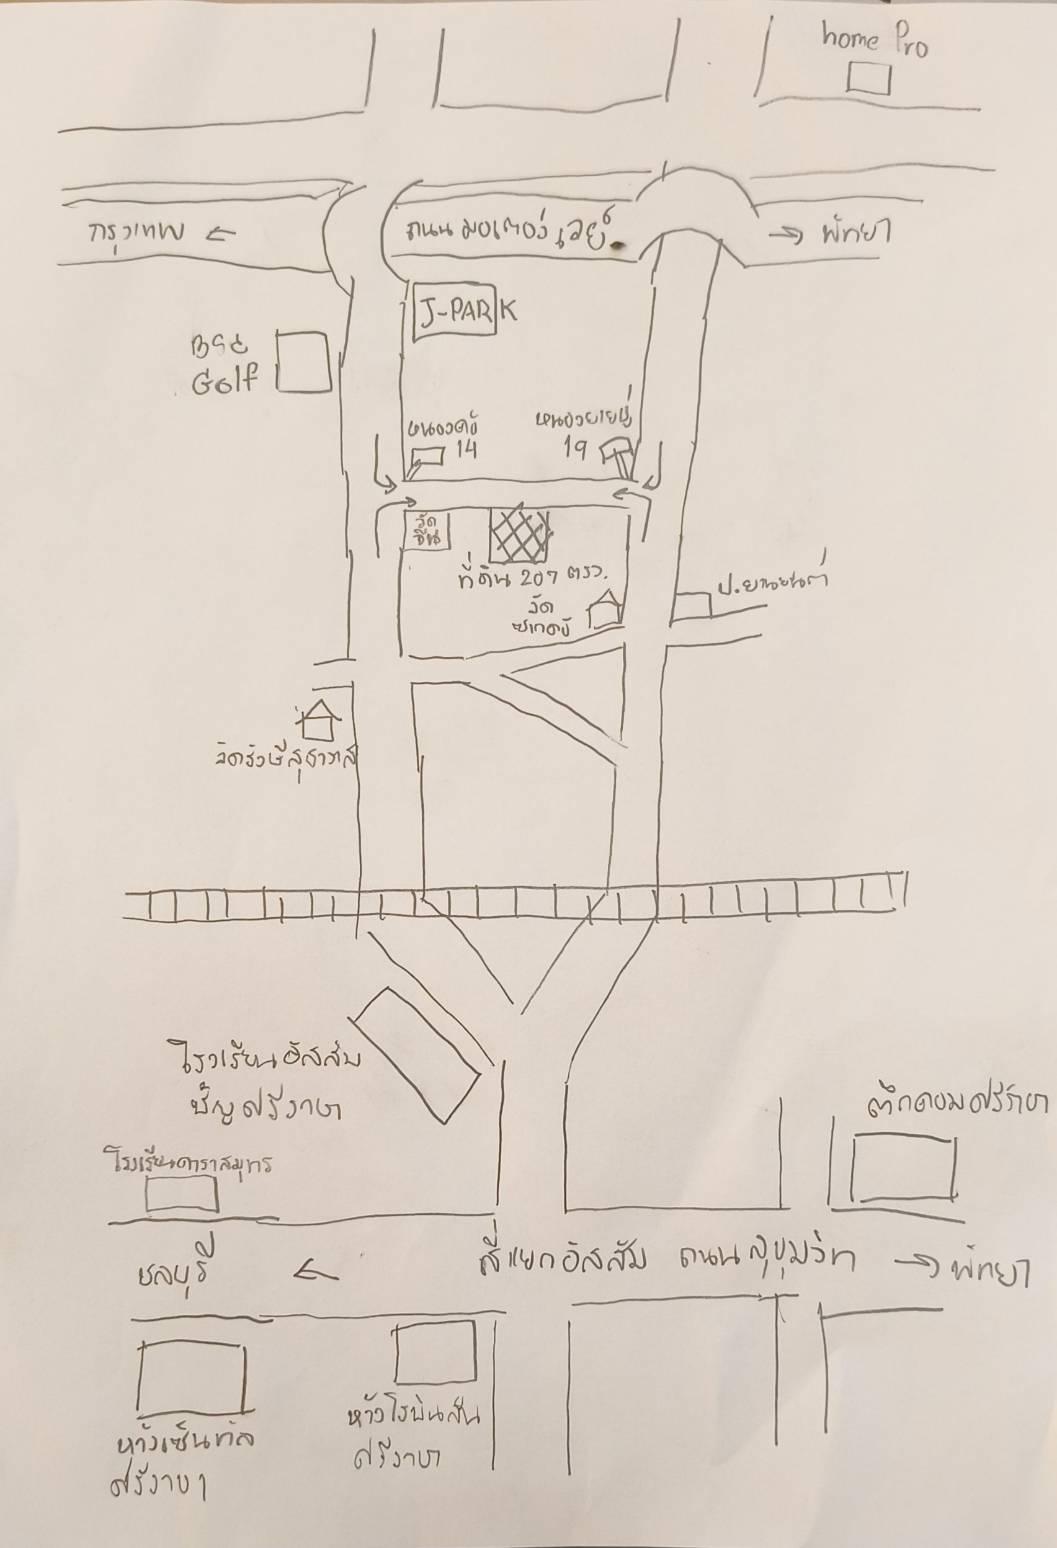 home Pro
กรุงเทพ ←
ถนนมอเตอร์เวย์
→ พัทยา
J-PARK
Golf
หนองค้อ
14
หนองยายบู่
19
วัด
จีน
ที่ดิน 207 ตรว.
วัด
ป.ยานยนต์
วัดรังษีสุธาวาส
โรงเรียนอัสสัม
ชัญศรีราชา
ตึกคอมศรีราชา
โรงเรียนดาราสมุทร
ชลบุรี ←
สี่แยกอัสสัม ถนนสุขุมวิท → พัทยา
ห้างเซ็นทัล
ศรีราชา
ห้างโรบินสัน
ศรีราชา